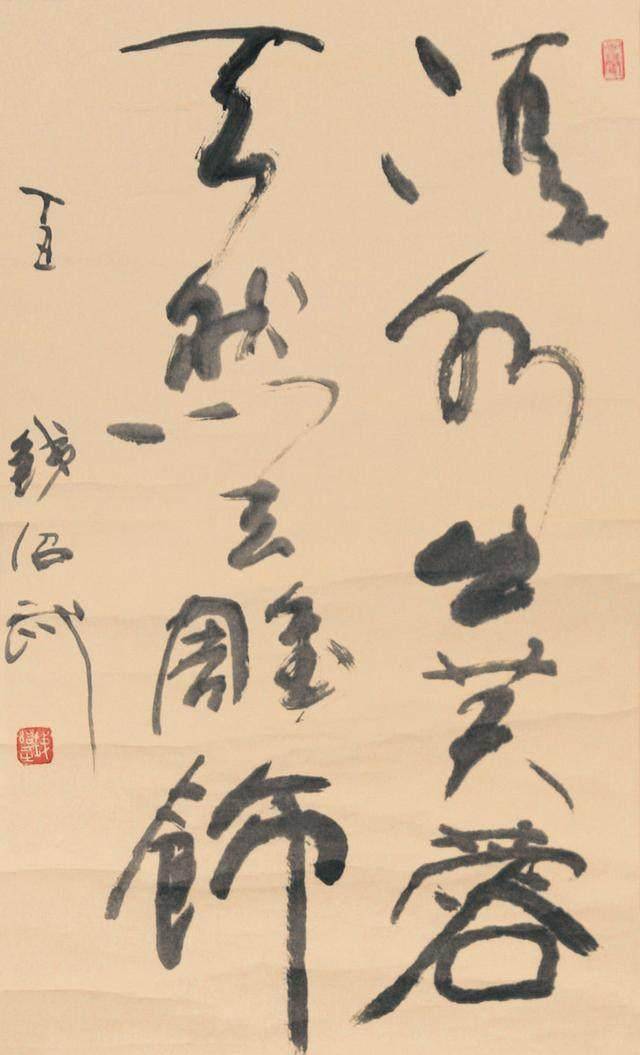 清水出芙蓉
天然去雕飾
丁丑
錢绍武